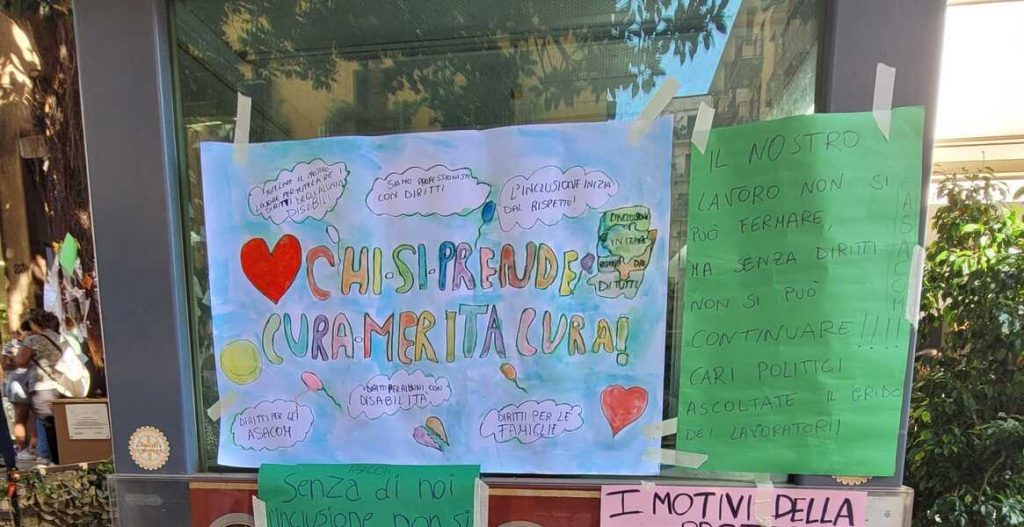 TUTELARE IL NOSTRO
LAVORO PER TUTELARE I
DIRITTI DEGLI ALUNNI
DISABILI
SIAMO PROFESSIONISTI
CON DIRITTI
L'INCLUSIONE INIZIA
DAL RISPETTO!
L'INCLUSIONE
INIZIA
DA
DI TUTTI
CHI·SI·PRENDE
CURA·MERITA CURA!
DIRITTI PER GLI
ASACOM
DIRITTI PER ALUNNI CON
DISABILITÀ
DIRITTI PER LE
FAMIGLIE
IL NOSTRO
LAVORO NON SI
PUÒ FERMARE,
MA SENZA DIRITTI
NON SI PUÒ
CONTINUARE!!!!
CARI POLITICI
ASCOLTATE IL GRIDO
DEI LAVORATORI!
ASACOM
ASACOM
Senza di noi
l'inclusione non si
I MOTIVI DELLA